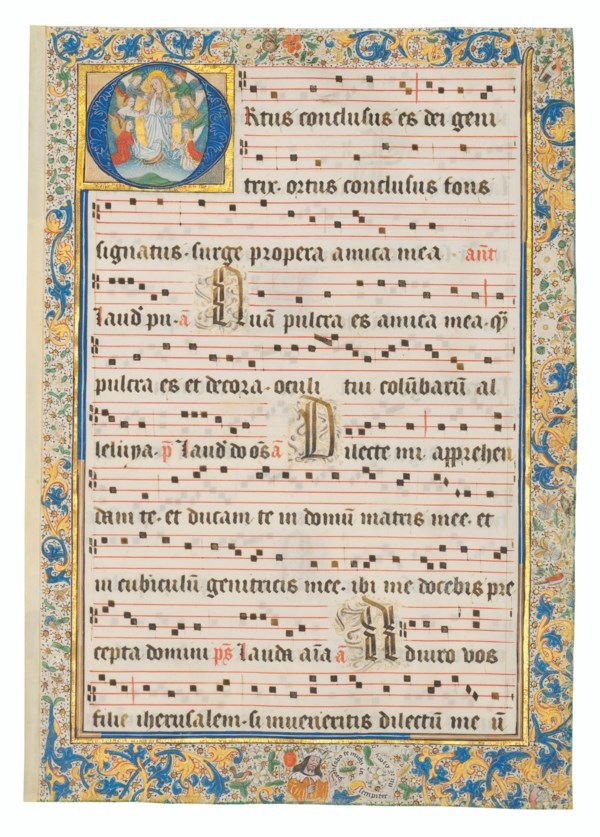 ORtus conclusus es dei geni
trix · ortus conclusus fons
signatus · surge propera amica mea añt
Laud pu · ā Quā pulcra es amica mea · q̄
pulcra es et decora · oculi tui colūbarū al
leluya · p̄ Laud do oōs ā Dilecte mi apprehen
dam te · et ducam te in domū matris mee · et
in cubiculū genitricis mee · ibi me docebis pre
cepta domini ps̄ Lauda aīa ā Adiuro vos
filie iherusalem · si inveneritis dilectū me ū